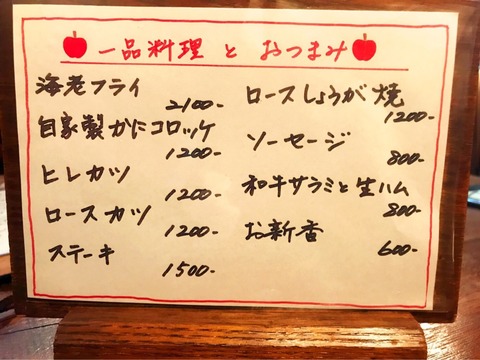 一品料理 と おつまみ
海老フライ
2100-
自家製かにコロッケ
1200-
ヒレカツ
1200-
ロースカツ
1200-
ステーキ
1500-
ロースしょうが焼
1200-
ソーセージ
800-
和牛サラミと生ハム
800-
お新香
600-